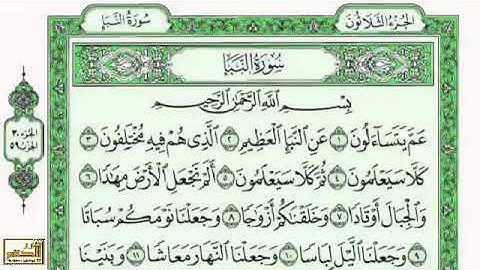 الجزء الثلاثون
سورة النبإ
سُورَةُ النَّبَإِ
بِسْمِ اللَّهِ الرَّحْمَٰنِ الرَّحِيمِ
عَمَّ يَتَسَاءَلُونَ ١ عَنِ النَّبَإِ الْعَظِيمِ ٢ الَّذِي هُمْ فِيهِ مُخْتَلِفُونَ ٣
كَلَّا سَيَعْلَمُونَ ٤ ثُمَّ كَلَّا سَيَعْلَمُونَ ٥ أَلَمْ نَجْعَلِ الْأَرْضَ مِهَٰدًا ٦
وَالْجِبَالَ أَوْتَادًا ٧ وَخَلَقْنَٰكُمْ أَزْوَٰجًا ٨ وَجَعَلْنَا نَوْمَكُمْ سُبَاتًا
٩ وَجَعَلْنَا اللَّيْلَ لِبَاسًا ١٠ وَجَعَلْنَا النَّهَارَ مَعَاشًا ١١ وَبَنَيْنَا
الجزء ٣٠
الحزب ٥٩